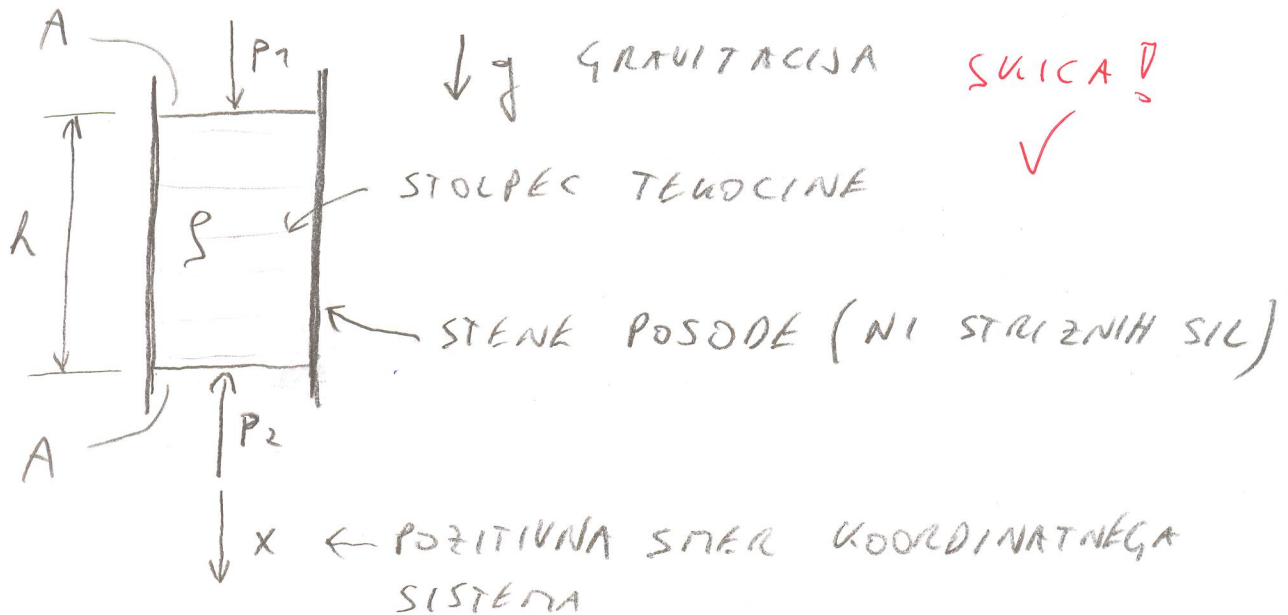 A
p1
↓ g GRAVITACIJA
SKICA!
STOLPEC TEKOCINE
h
ρ
STENE POSODE (NI STRIZNIH SIL)
A
p2
x ← POZITIVNA SMER KOORDINATNEGA
SISTEMA